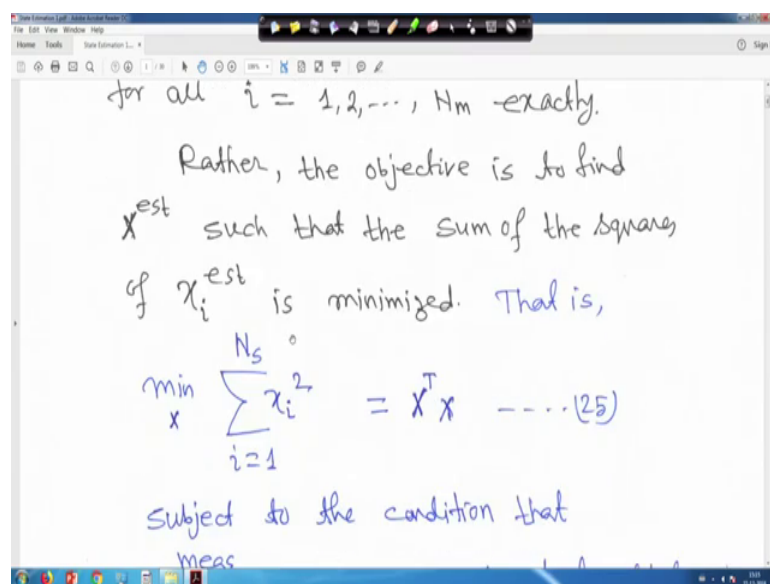 State Estimation 1.pdf - Adobe Acrobat Reader DC
File Edit View Window Help
Home Tools State Estimation 1...
Sign
for all i = 1,2,---, Nm exactly.
Rather, the objective is to find
x^est such that the sum of the squares
of x_i^est is minimized. That is,
min_x ∑_{i=1}^{N_S} x_i^2 = x^T x ----.(25)
subject to the condition that
meas